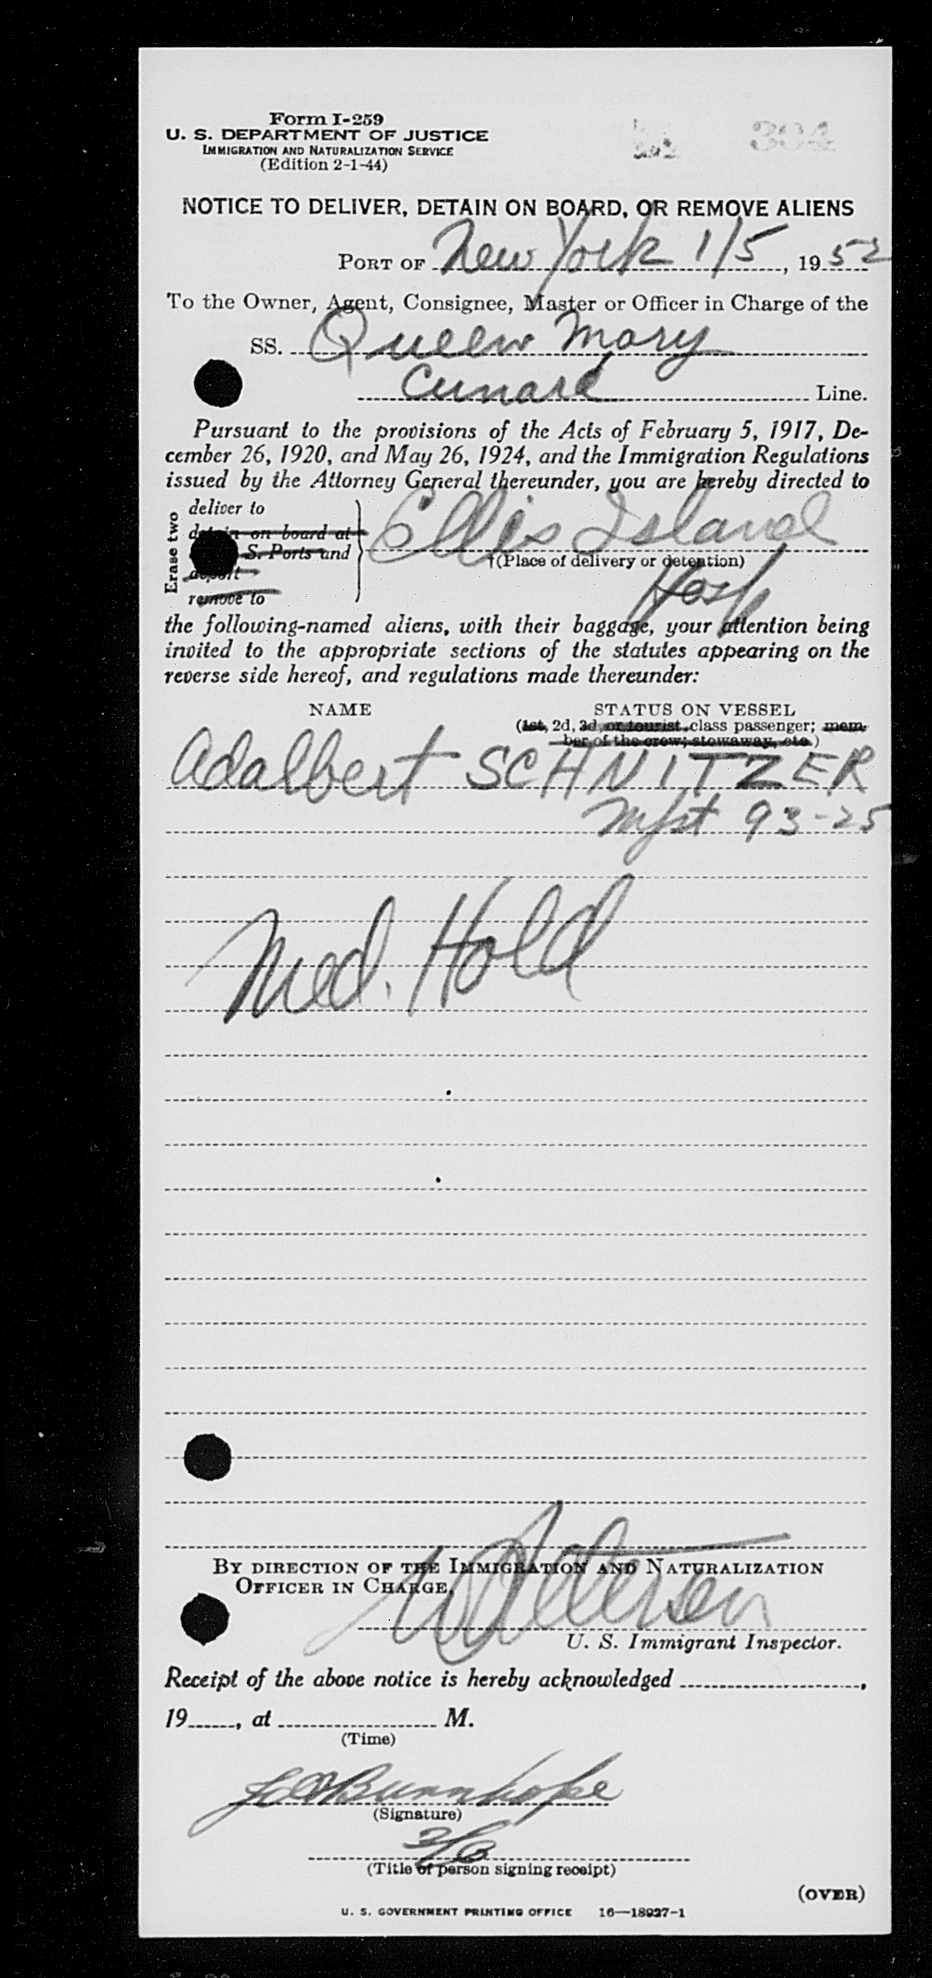 Form I-259
U. S. DEPARTMENT OF JUSTICE
IMMIGRATION AND NATURALIZATION SERVICE
(Edition 2-1-44)
NOTICE TO DELIVER, DETAIN ON BOARD, OR REMOVE ALIENS
PORT OF New York 1/5, 1952
To the Owner, Agent, Consignee, Master or Officer in Charge of the
SS. Queen Mary
Cunard Line.
Pursuant to the provisions of the Acts of February 5, 1917, De-
cember 26, 1920, and May 26, 1924, and the Immigration Regulations
issued by the Attorney General thereunder, you are hereby directed to
Erase two
deliver to
detain on board at
S. Ports and
deport
remove to
Ellis Island
†(Place of delivery or detention)
Hosp
the following-named aliens, with their baggage, your attention being
invited to the appropriate sections of the statutes appearing on the
reverse side hereof, and regulations made thereunder:
NAME STATUS ON VESSEL
(1st, 2d, 3d, or tourist class passenger; mem-
ber of the crew; stowaway, etc.)
Adalbert SCHNITZER
Mfst 93-25
Med. Hold
BY DIRECTION OF THE IMMIGRATION AND NATURALIZATION
OFFICER IN CHARGE,
U. S. Immigrant Inspector.
Receipt of the above notice is hereby acknowledged ,
19 , at M.
(Time)
(Signature)
(Title of person signing receipt)
(OVER)
U. S. GOVERNMENT PRINTING OFFICE 16—18927-1